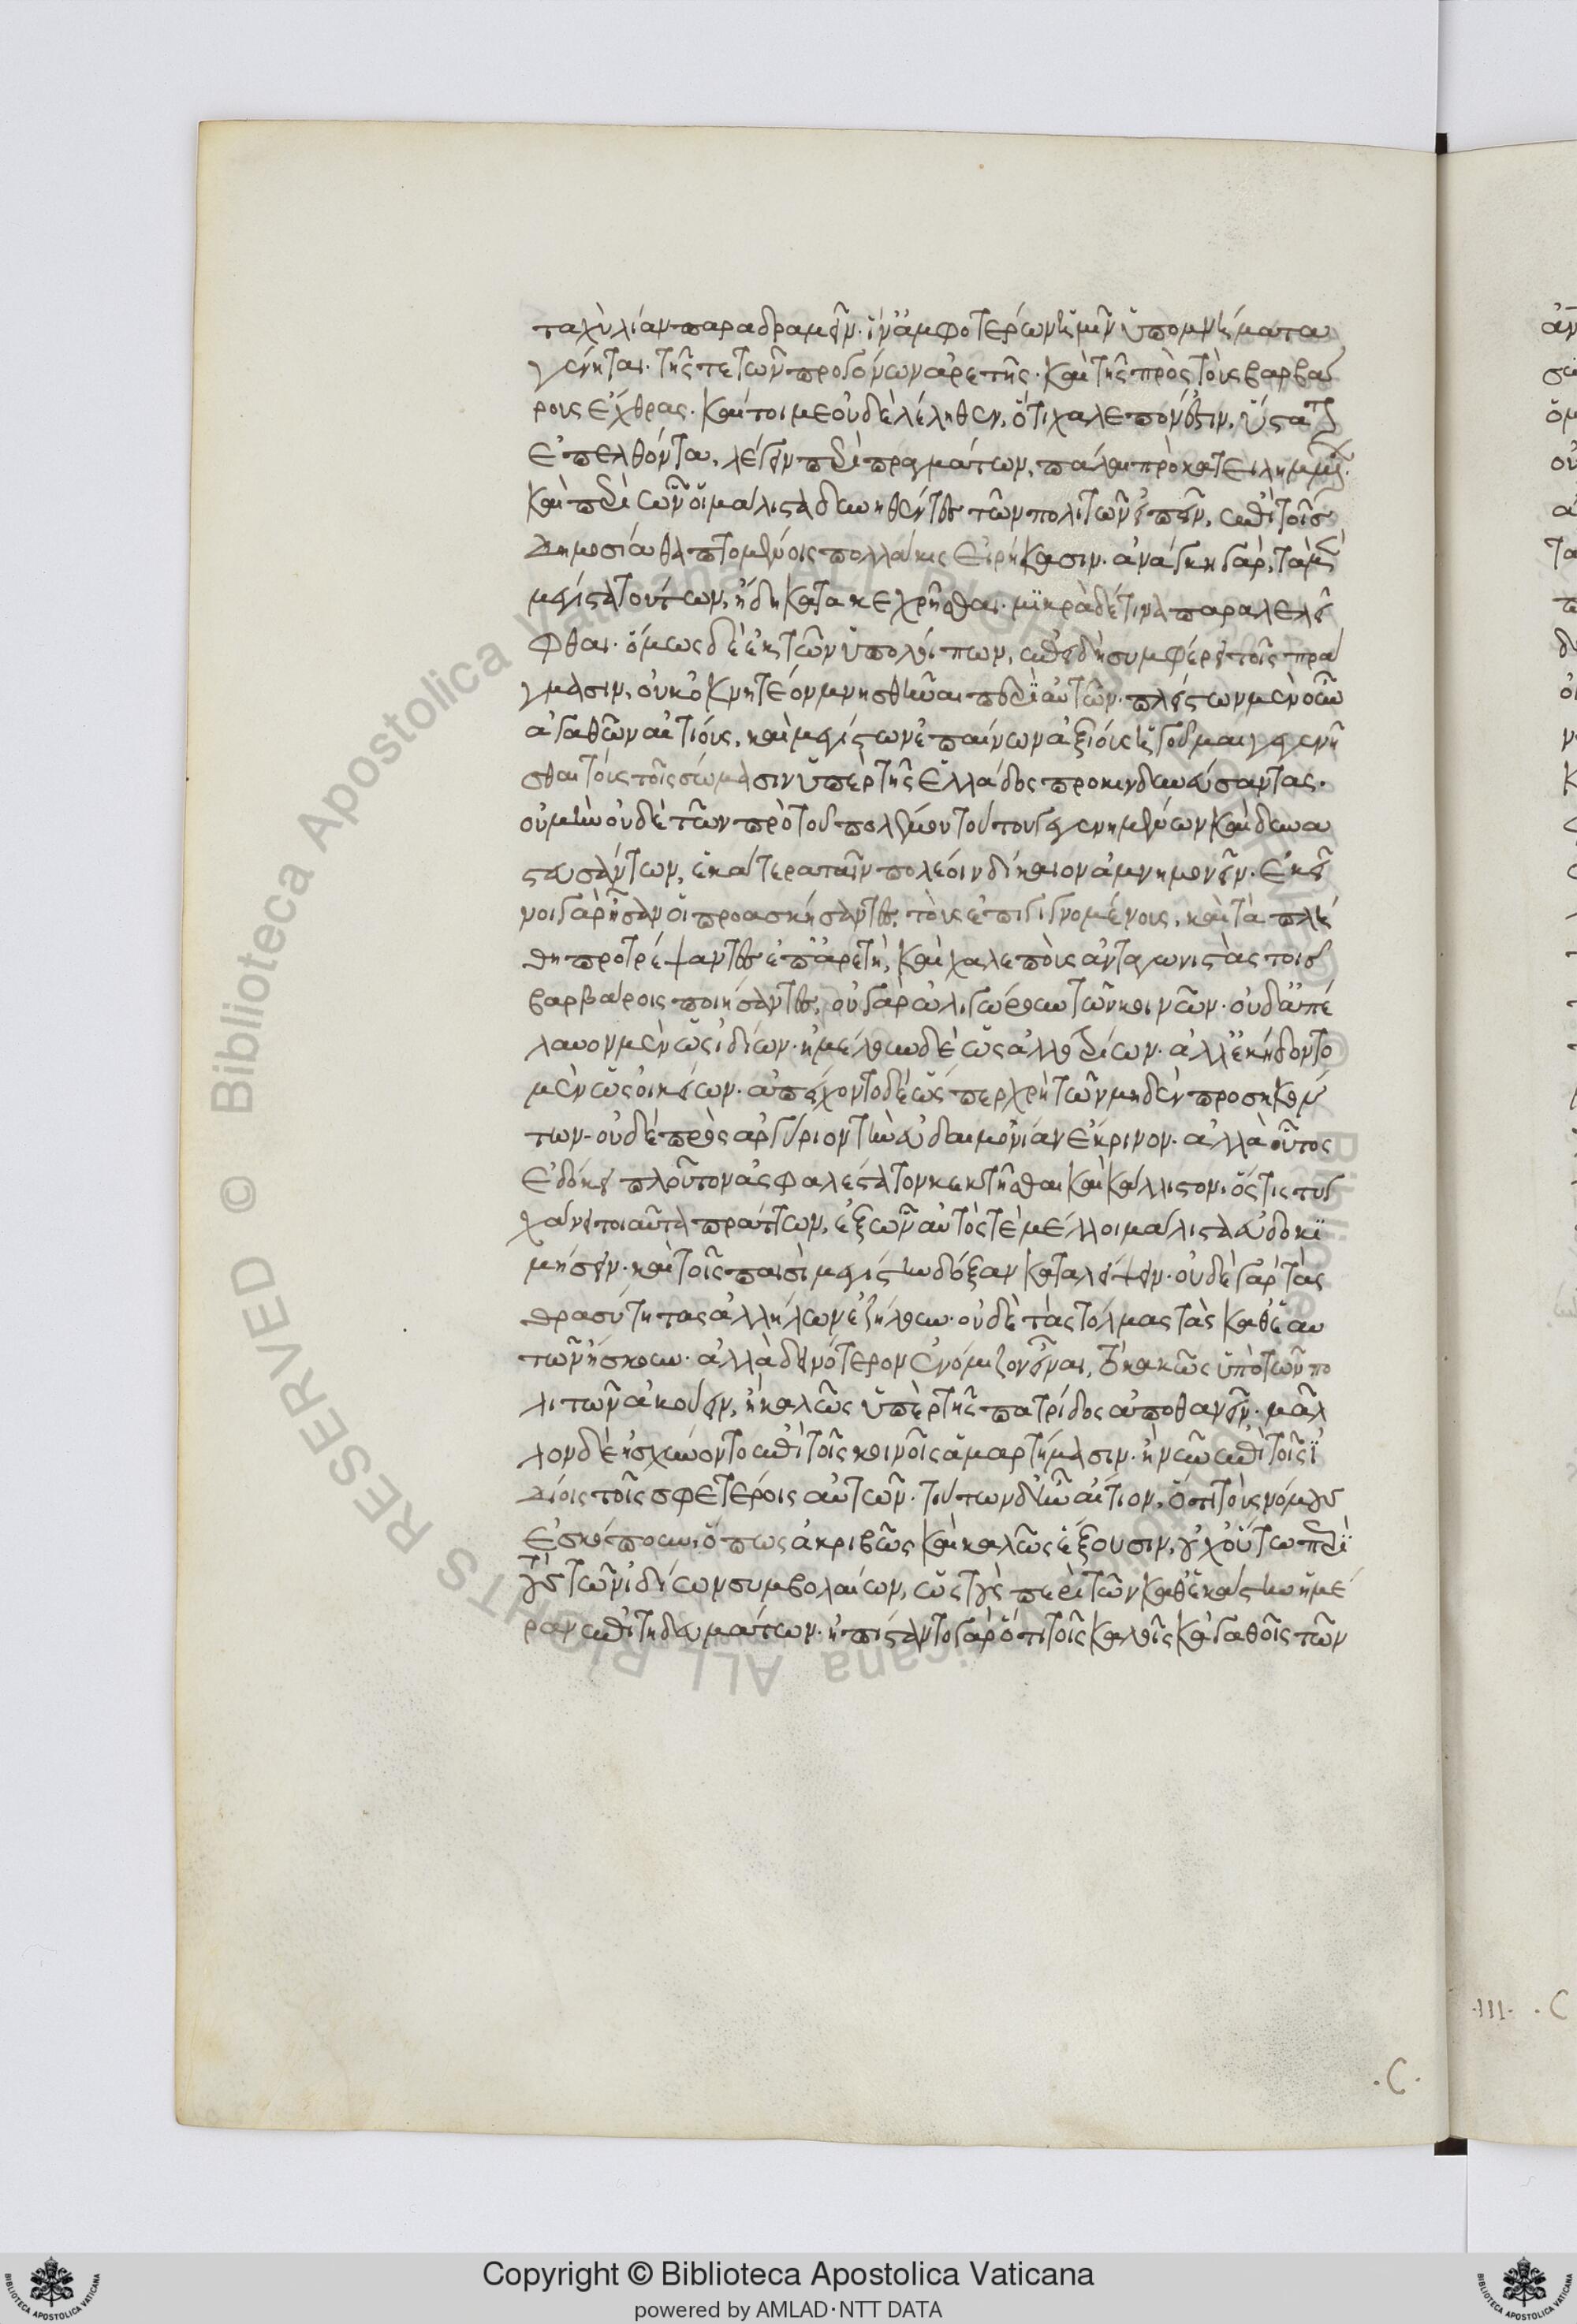 ταχὺ λίαν παραδραμεῖν· ἵν' ἀμφοτέρων ἡμῖν ὑπομνήματα
γένηται· τῆς τε τῶν προγόνων ἀρετῆς· καὶ τῆς πρὸς τοὺς βαρβά
ρους ἔχθρας· καί τοι με οὐδὲ λέληθεν, ὅτι χαλεπόν ἐστιν, ὕστατον
ἐπελθόντα, λέγειν περὶ πραγμάτων, πάλαι προκατειλημμένων·
καὶ περὶ ὧν οἱ μάλιστα δυνηθέντες τῶν πολιτῶν εἰπεῖν, ἐπὶ τοῖς
δημοσία θαπτομένοις πολλάκις εἰρήκασιν· ἀνάγκη γὰρ, τὰ μὲν
μέγιστα τούτων, ἤδη κατακεχρῆσθαι· μϊκρὰ δέ τινα παραλελεῖ
φθαι· ὅμως δὲ ἐκ τῶν ὑπολοίπων, ἐπειδὴ συμφέρει τοῖς πρά
γμασιν, οὐκ ὀκνητέον μνησθῆναι περὶ αὐτῶν· πλείστων μὲν οὖν
ἀγαθῶν αἰτίους, καὶ μεγίστων ἐπαίνων ἀξίους ἡγοῦμαι γεγενῆ
σθαι τοὺς τοῖς σώμασιν ὑπὲρ τῆς Ἑλλάδος προκινδυνεύσαντας·
οὐ μὴν οὐδὲ τῶν πρὸ τοῦ πολέμου τούτου γεγενημένων καὶ δυνα
στευσάντων, ἑκατέρα ταῖν πολέοιν δίκαιον ἀμνημονεῖν· ἐκεῖ
νοι γὰρ ἦσαν οἱ προασκήσαντες, τοὺς ἐπιγιγνομένους, καὶ τὰ πλή
θη προτρέψαντες ἐπ' ἀρετὴν, καὶ χαλεποὺς ἀνταγωνιστὰς τοῖς
βαρβάροις ποιήσαντες, οὐ γὰρ ὠλιγώρουν τῶν κοινῶν· οὐδ' ἀπέ
λαυον μὲν ὡς ἰδίων· ἠμέλουν δὲ ὡς ἀλλοτρίων· ἀλλ' ἐκήδοντο
μὲν ὡς οἰκείων· ἀπείχοντο δὲ ὥσπερ χρὴ τῶν μηδὲν προσηκόν
των· οὐδὲ πρὸς ἀργύριον τὴν εὐδαιμονίαν ἔκρινον· ἀλλὰ οὗτος
ἐδόκει πλοῦτον ἀσφαλέστατον κεκτῆσθαι καὶ κάλλιστον· ὅστις τυγ
χάνει τοιαῦτα πράττων, ἐξ ὧν αὐτός τε μέλλοι μάλιστα εὐδοκϊ
μήσειν· καὶ τοῖς παισὶ μεγίστην δόξαν καταλείψειν· οὐδὲ γὰρ τὰς
θρασύτητας ἀλλήλων ἐζήλουν· οὐδὲ τὰς τόλμας τὰς καθ' ἑαυ
τῶν ἤσκουν· ἀλλὰ δεινότερον ἐνόμιζον εἶναι, τὸ κακῶς ὑπὸ τῶν πο
λιτῶν ἀκούειν, ἢ καλῶς ὑπὲρ τῆς πατρίδος ἀποθανεῖν· μᾶλ
λον δὲ ἠσχύνοντο ἐπὶ τοῖς κοινοῖς ἁμαρτήμασιν· ἢ νῦν ἐπὶ τοῖς ἰ
δίοις τοῖς σφετέροις αὐτῶν· τούτων δ' ἦν αἴτιον, ὅτι τοὺς νόμους
ἐσκόπουν, ὅπως ἀκριβῶς καὶ καλῶς ἕξουσιν, οὐχ οὕτω περὶ
τοὺς τῶν ἰδίων συμβολαίων, ὡς τοὺς περὶ τῶν καθ' ἑκάστην ἡμέ
ραν ἐπιτηδευμάτων· ἠπίσταντο γὰρ ὅτι τοῖς καλοῖς κἀγαθοῖς τῶν
·C·
·III· ·C
Copyright © Biblioteca Apostolica Vaticana
powered by AMLAD·NTT DATA